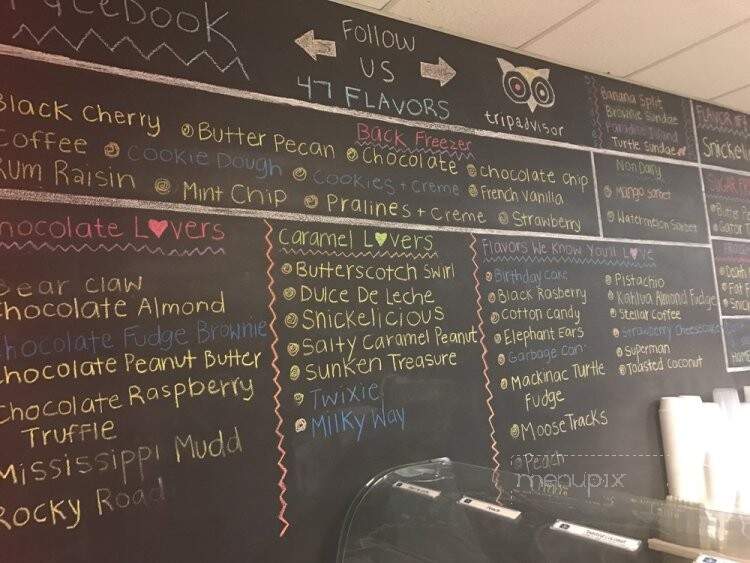 Follow
US
47 FLAVORS
tripadvisor
Banana Split
Brownie Sundae
Paradise Island
Turtle Sundae
Back Freezer
Black Cherry
Butter Pecan
Chocolate
chocolate chip
Coffee
Cookie Dough
Cookies + creme
French Vanilla
Rum Raisin
Mint Chip
Pralines + Creme
Strawberry
Non Dairy
Mango Sorbet
Watermelon Sorbet
Chocolate Lovers
Bear Claw
Chocolate Almond
Chocolate Fudge Brownie
Chocolate Peanut Butter
Chocolate Raspberry
Truffle
Mississippi Mudd
Rocky Road
Caramel Lovers
Butterscotch Swirl
Dulce De Leche
Snickelicious
Salty Caramel Peanut
Sunken Treasure
Twixie
Milky Way
Flavors We Know You'll Love
Birthday Cake
Black Rasberry
Cotton Candy
Elephant Ears
Garbage Can
Mackinac Turtle
Fudge
Moose Tracks
Peach
Pistachio
Kahlua Almond Fudge
Stellar Coffee
Strawberry Cheesecake
Superman
Toasted Coconut
menupix